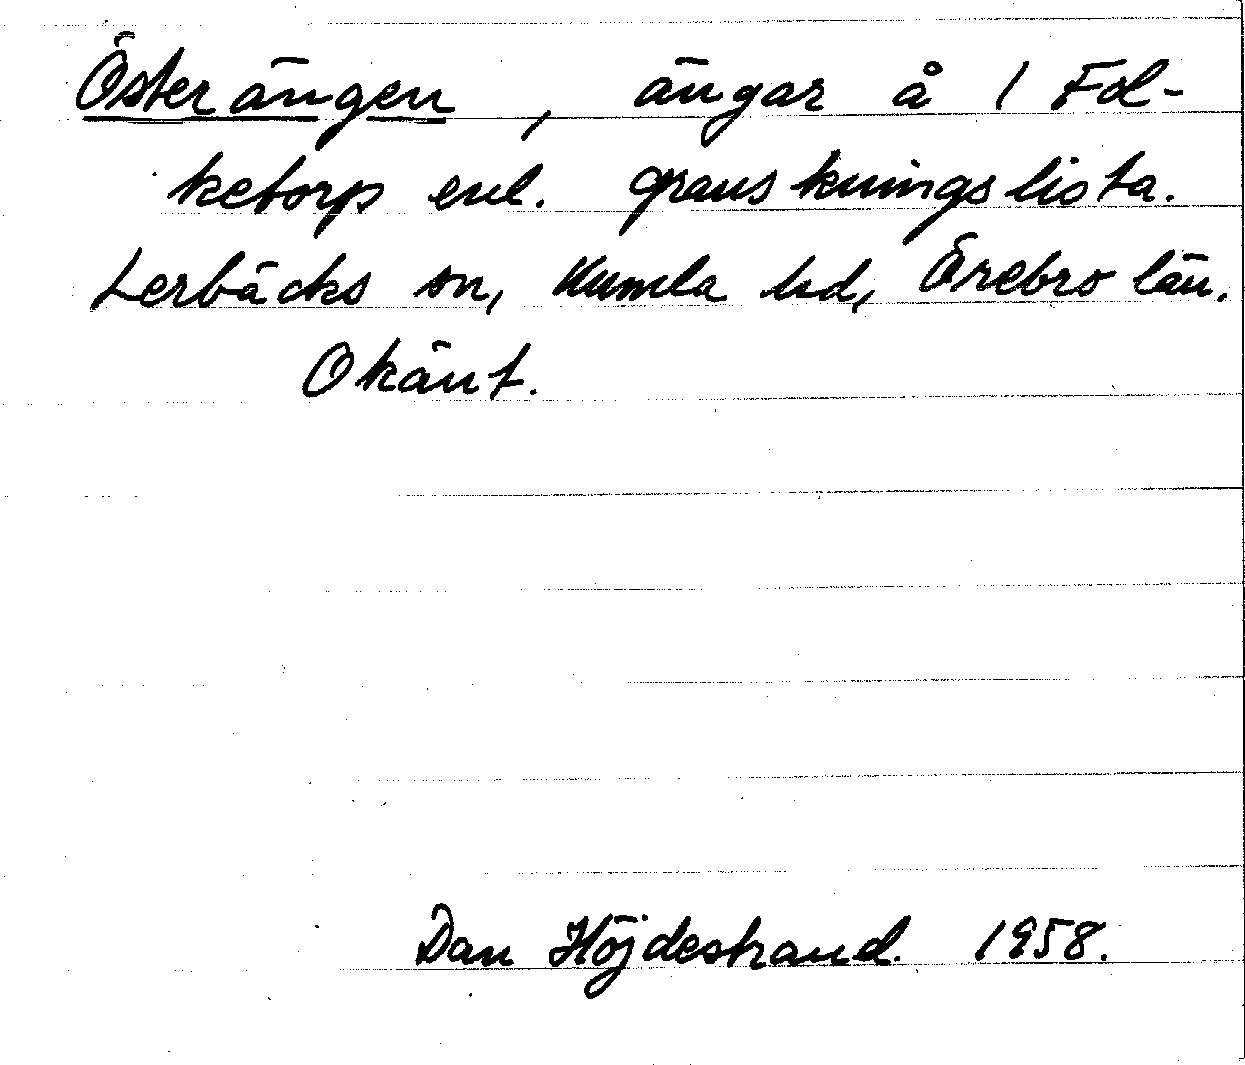 Österängen, ängar å 1 Fol-
ketorp enl. granskningslista.
Lerbäcks sn, Kumla hd, Örebro län.
Okänt.
Dan Höjdestrand. 1958.